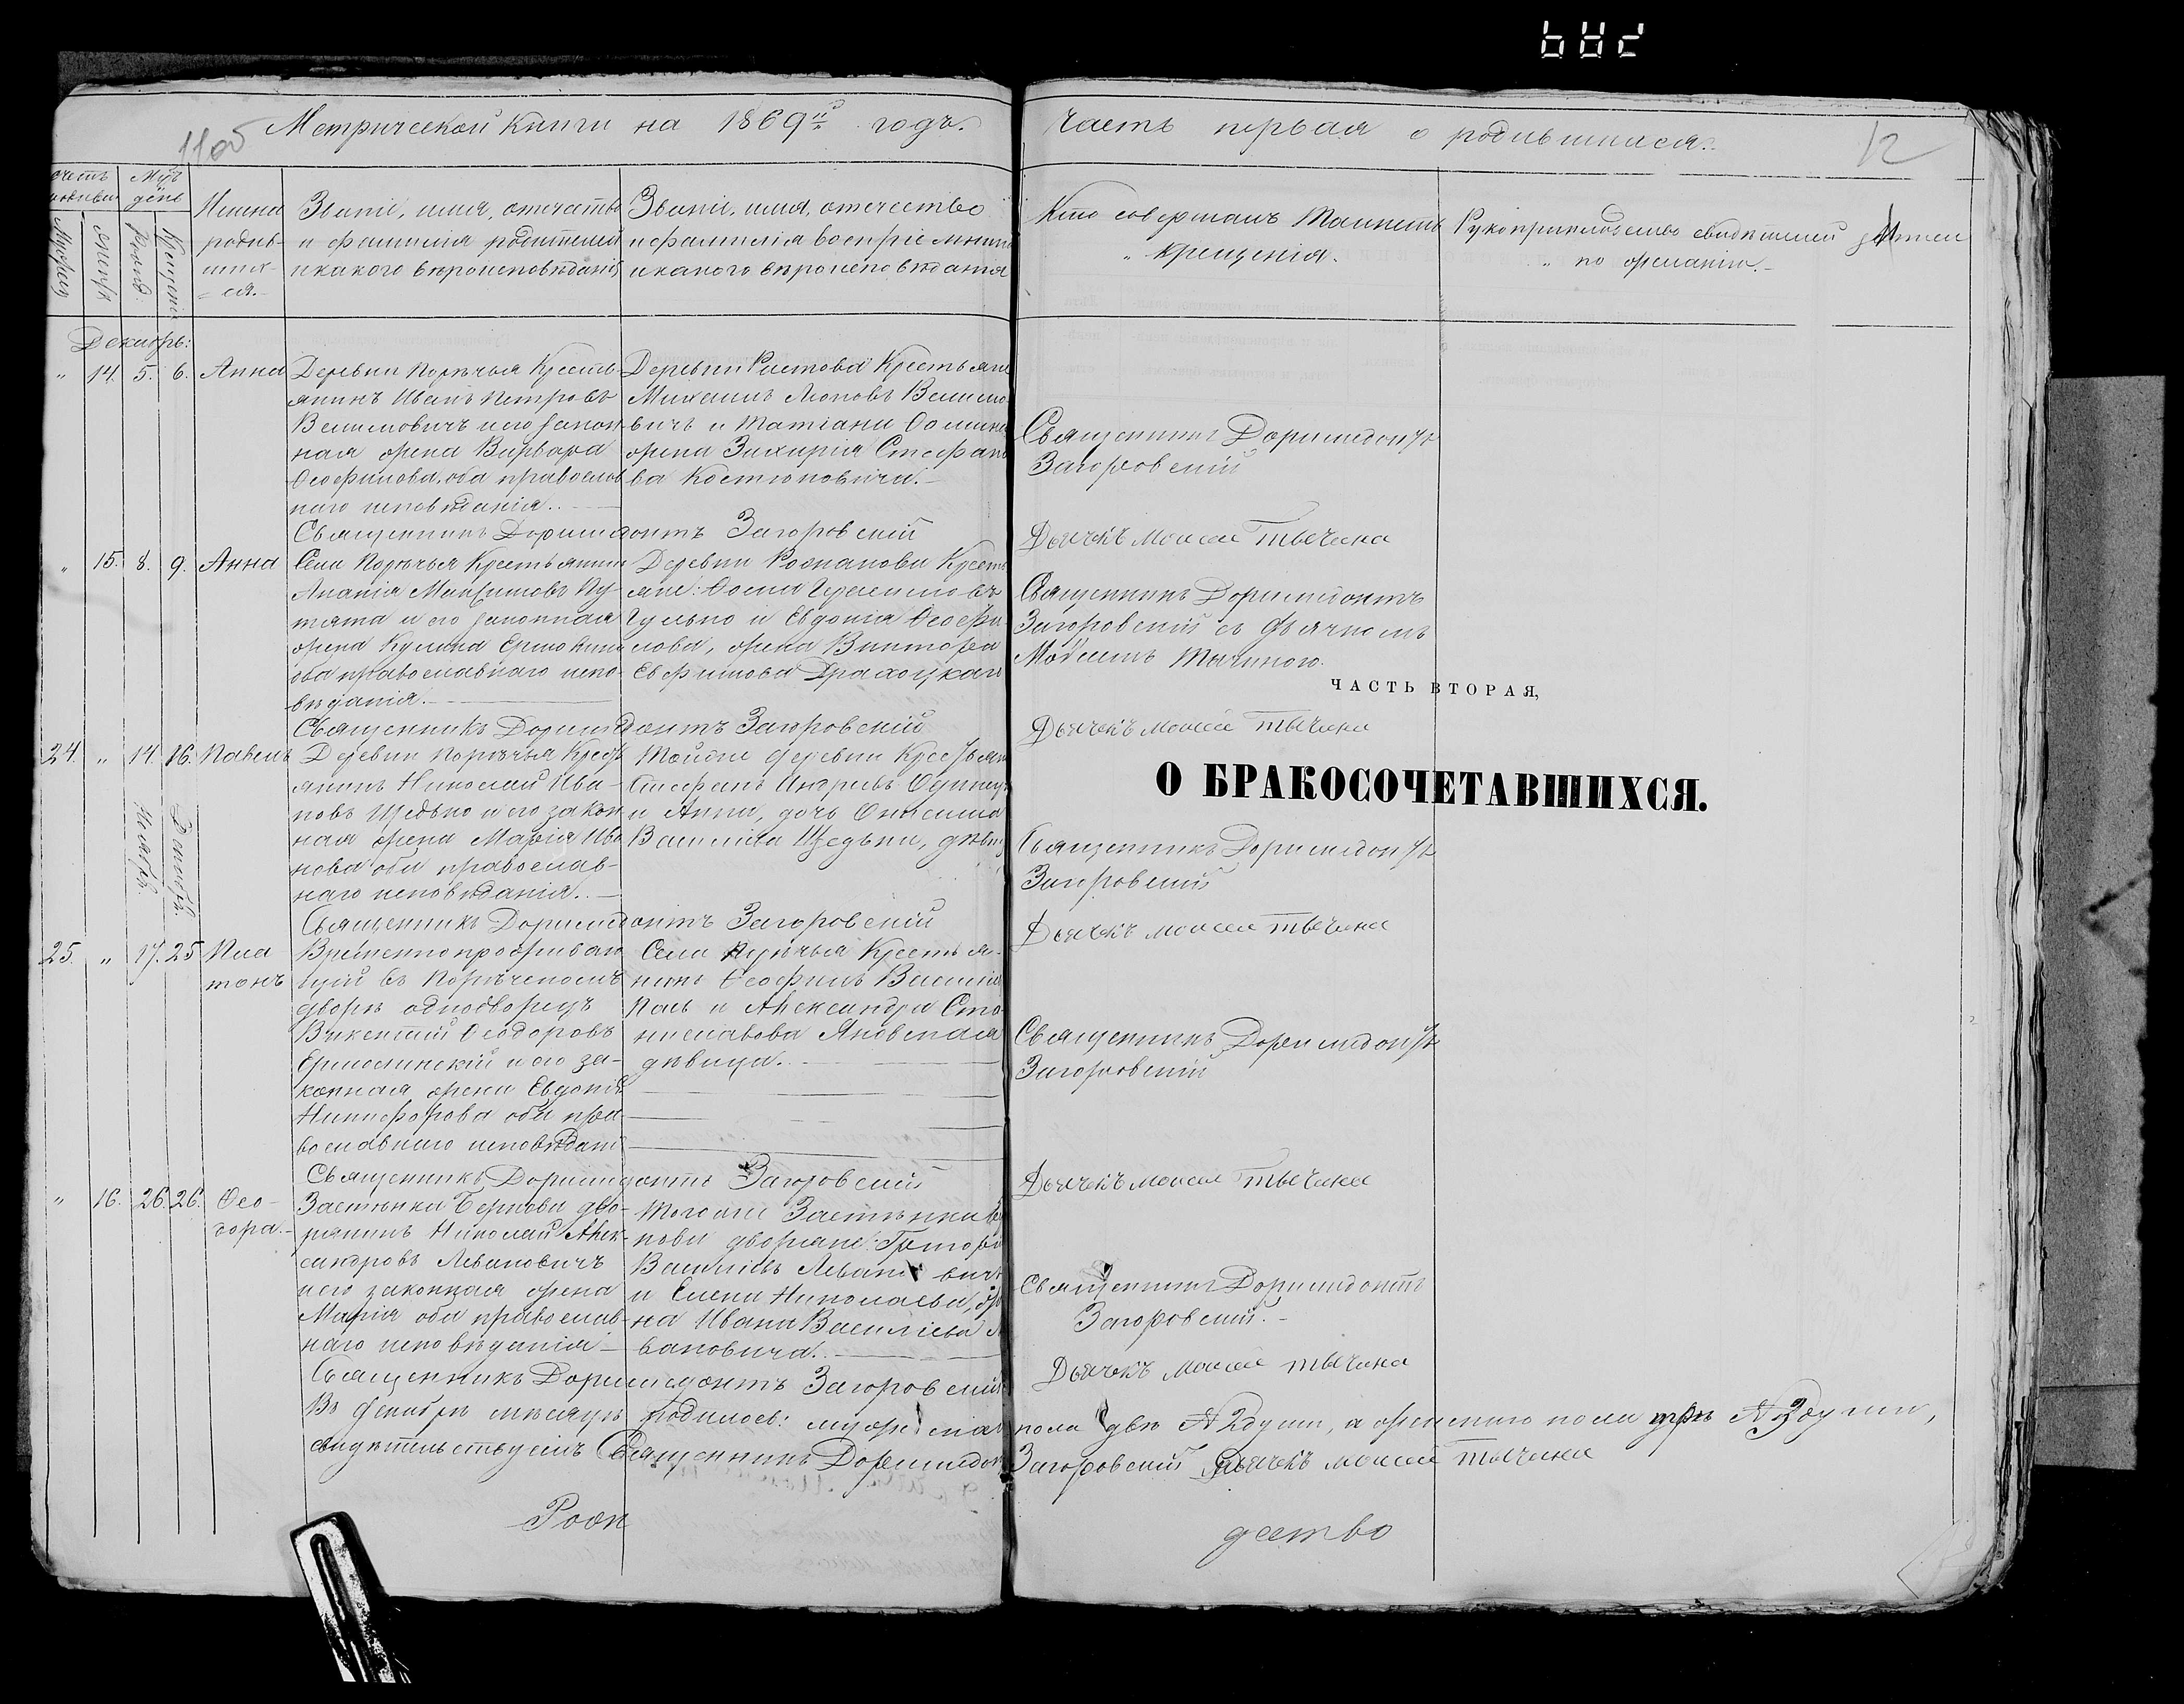 Метрической книги на 1869й годъ.
11об
Часть первая о родившихся.
12
счетъ родивш.
Мѣц. день
Мужеска
Женска
Рожд.
Крещенія
Имена родив-
шихъ-
ся.
Званіе, имя, отчество
и фамилія родителей
и какого вѣроисповѣданія
Званіе, имя, отчество
и фамилія воспріемник
и какого вѣроисповѣданія
Кто совершалъ Таинств
крещенія.
Рукоприкладство свидѣтелей записи
по желанію.
Декабрь:
" 14. 5. 6. Анна
Деревни Порѣчья Кресть-
янинъ Иванъ Петровъ
Велимовичъ и его закон-
ная жена Варвара
Ѳеофилова, оба православ
наго исповѣданія.
Деревни Ростова Крестьяне
Михаилъ Велимо-
вичъ и Татіана Ѳомина
жена Захарія Стефано
ва Костюковича.
Священникъ Доримедонтъ
Загоровскій
Священникъ Доримедонтъ Загоровскій
Дьячекъ Моисей Тычина
" 15. 8. 9. Анна
Села Порѣчья Крестьянинъ
Ананія Максимовъ Пу-
тята и его законная
жена Кулина
оба православнаго испо-
вѣданія.
Деревни Крестья
яне:
и Евдокія Ѳеофи-
лова, жена Виктора
Священникъ Доримедонтъ
Загоровскій съ дьячкомъ
Моисеемъ Тычиною.
ЧАСТЬ ВТОРАЯ,
Священникъ Доримедонтъ Загоровскій
Дьячекъ Моисей Тычина
О БРАКОСОЧЕТАВШИХСЯ.
24. " 14. 16. Павелъ
Ноября.
Декабря.
Деревни Порѣчья Крест
янинъ Николай Ива-
новъ Щедько и его закон
ная жена Марія Ива
нова оба православ-
наго исповѣданія.
Тойже деревни Крестьян
Стефанъ
и Анна, дочь Онисима
Василіева Щедьки, дѣви
Священникъ Доримедонтъ
Загоровскій
Священникъ Доримедонтъ Загоровскій
Дьячекъ Моисей Тычина
25. " 17. 25 Пла
тонъ
Временно проживаю
щій въ Порѣченскомъ
дворѣ однодворецъ
Викентій Ѳеодоровъ
и его за-
конная жена Евдокія
Никифорова оба пра-
вославнаго исповѣдані
Села Порѣчья Крестья-
нинъ Ѳеофилъ Василіе
и Александра Ста
ниславова Яновская
дѣвица.
Священникъ Доримедонтъ
Загоровскій
Священникъ Доримедонтъ Загоровскій
Дьячекъ Моисей Тычина
" 16. 26. 26. Ѳео-
дора.
Застѣнка дво-
рянинъ Николай Алек-
сандровъ Левановичъ
и его законная жена
Марія оба православ-
наго исповѣданія
Тогоже Застѣнка
нови дворяне: Григорі
Василіевъ Левановичъ
и Елена Николаева, же
на Ивана Василіева Ле
вановича.
Священникъ Доримедонтъ
Загоровскій.
Священникъ Доримедонтъ Загоровскій
Дьячекъ Моисей Тычина
Въ декабрѣ мѣсяцѣ родилось: мужескаго пола двѣ № 2 души, а женскаго пола три № 3 души,
свидѣтельствуемъ Священникъ Доримедонтъ Загоровскій Дьячекъ Моисей Тычина
Рож
дество